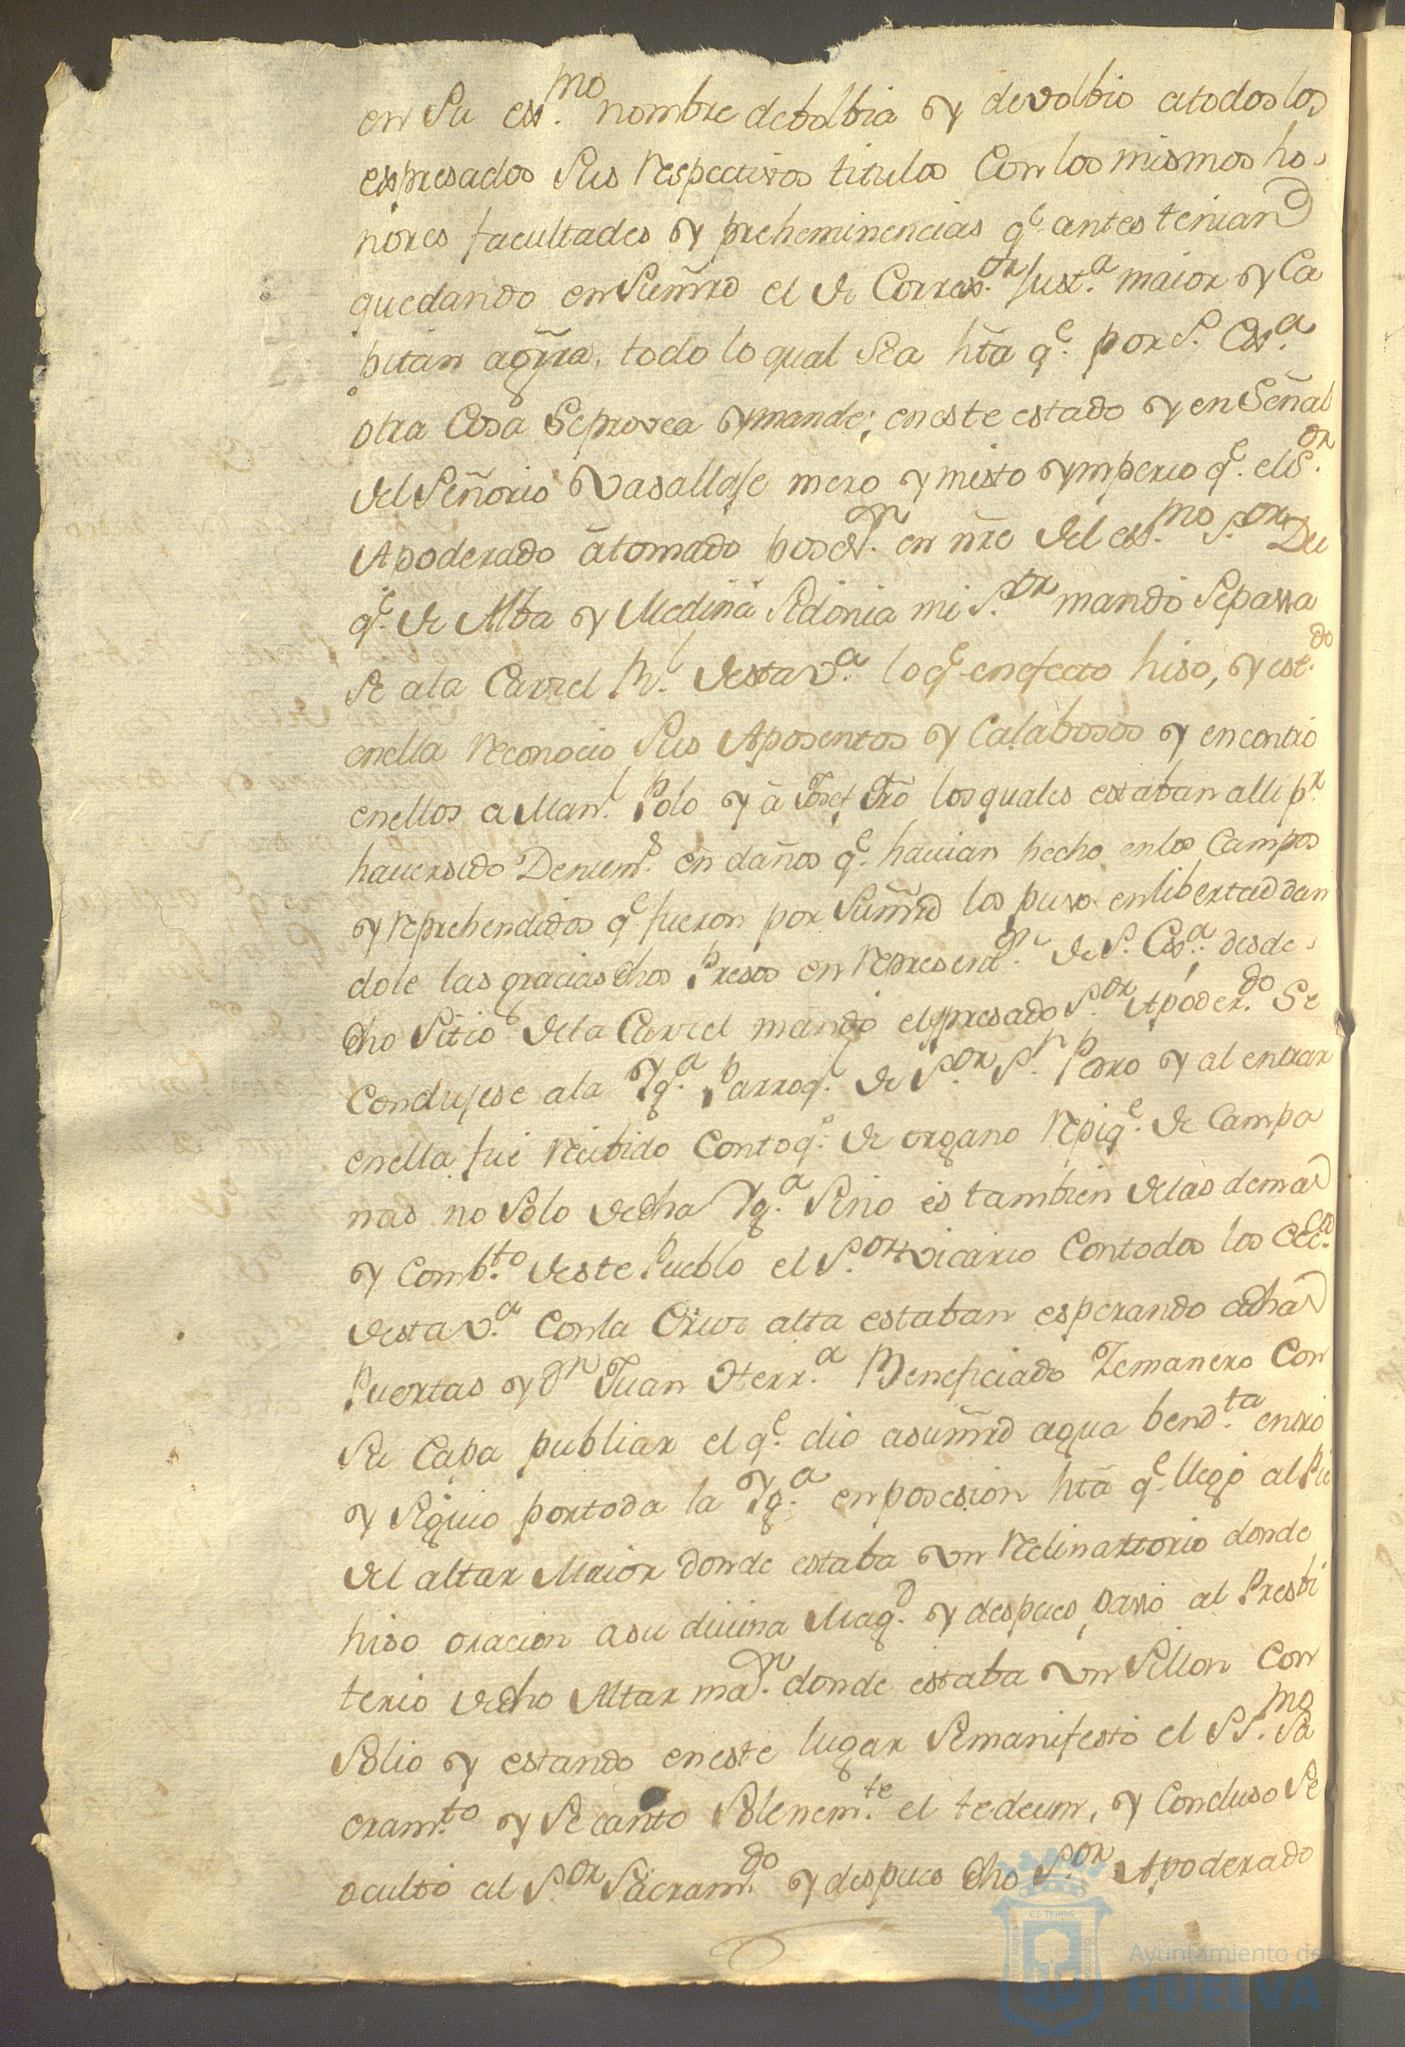 en su ex.mo nombre debolbia y devolbio a todos los
expresados sus respectivos titulos con los mismos ho-
nores facultades y preheminencias q.e antes tenian
quedando en su mrd el de Correx.or Just.a maior y Ca
pitan a grra. todo lo qual sea hta q.e por S. Exa.
otra Cosa se provea y mande; en este estado y en Señal
del Señorio Vasallaje mero y misto ymperio q.e el S.or
Apoderado â tomado poses.on en nre del ex.mo S.or Du
q.e de Alba y Medina Sidonia mi S.or mandó se passa
se a la Carzel R.l desta v.a lo q.e en efecto hiso, y est.do
en ella reconocio sus Aposentos y Calabosos y encontro
en ellos a Man.l Polo y â Josef los quales estaban alli p.r
haver sido Denun.s en daños q.e havian hecho en los Campos
y reprehendidos q.e fueron por su mrd los puso en libertad dan
dole las gracias dhos Presos en represent.on de S. Ex.a; desde
dho sitio de la Carzel mandó el expresado S.or Apoder.do se
Condujese a la Yg.a Parroq.l de S.or S.n Pedro y al entrar
en ella fue recibido con toq.e de organo repiq.e de Campa
nas no solo de dha Yg.a sino es tambien de las demas
y Comb.to deste Pueblo el S.or vicario con todos los Ecc.cos
desta v.a Con la Cruz alta estaban esperando a dhas
Puertas y D.n Juan Herr.a Beneficiado Zemanero Con
su Capa publiar el q.e dio a su mrd agua bend.ta entró
y siguio por toda la Yg.a en posesion hta q.e llegó al Pie
del altar Maior donde estaba vn reclinartorio donde
hiso oracion a su divina Mag.d y despues passó al Presbi
terio de dho Altar ma.or donde estaba vn sillon Con
solio y estando en este lugar se manifestó el SS.mo Sa
cram.to y se canto solenem.te el tedeum, y Concluso se
ocultó al S.or Sacram.do y despues dho S.or Apoderado
Ayuntamiento de
HUELVA